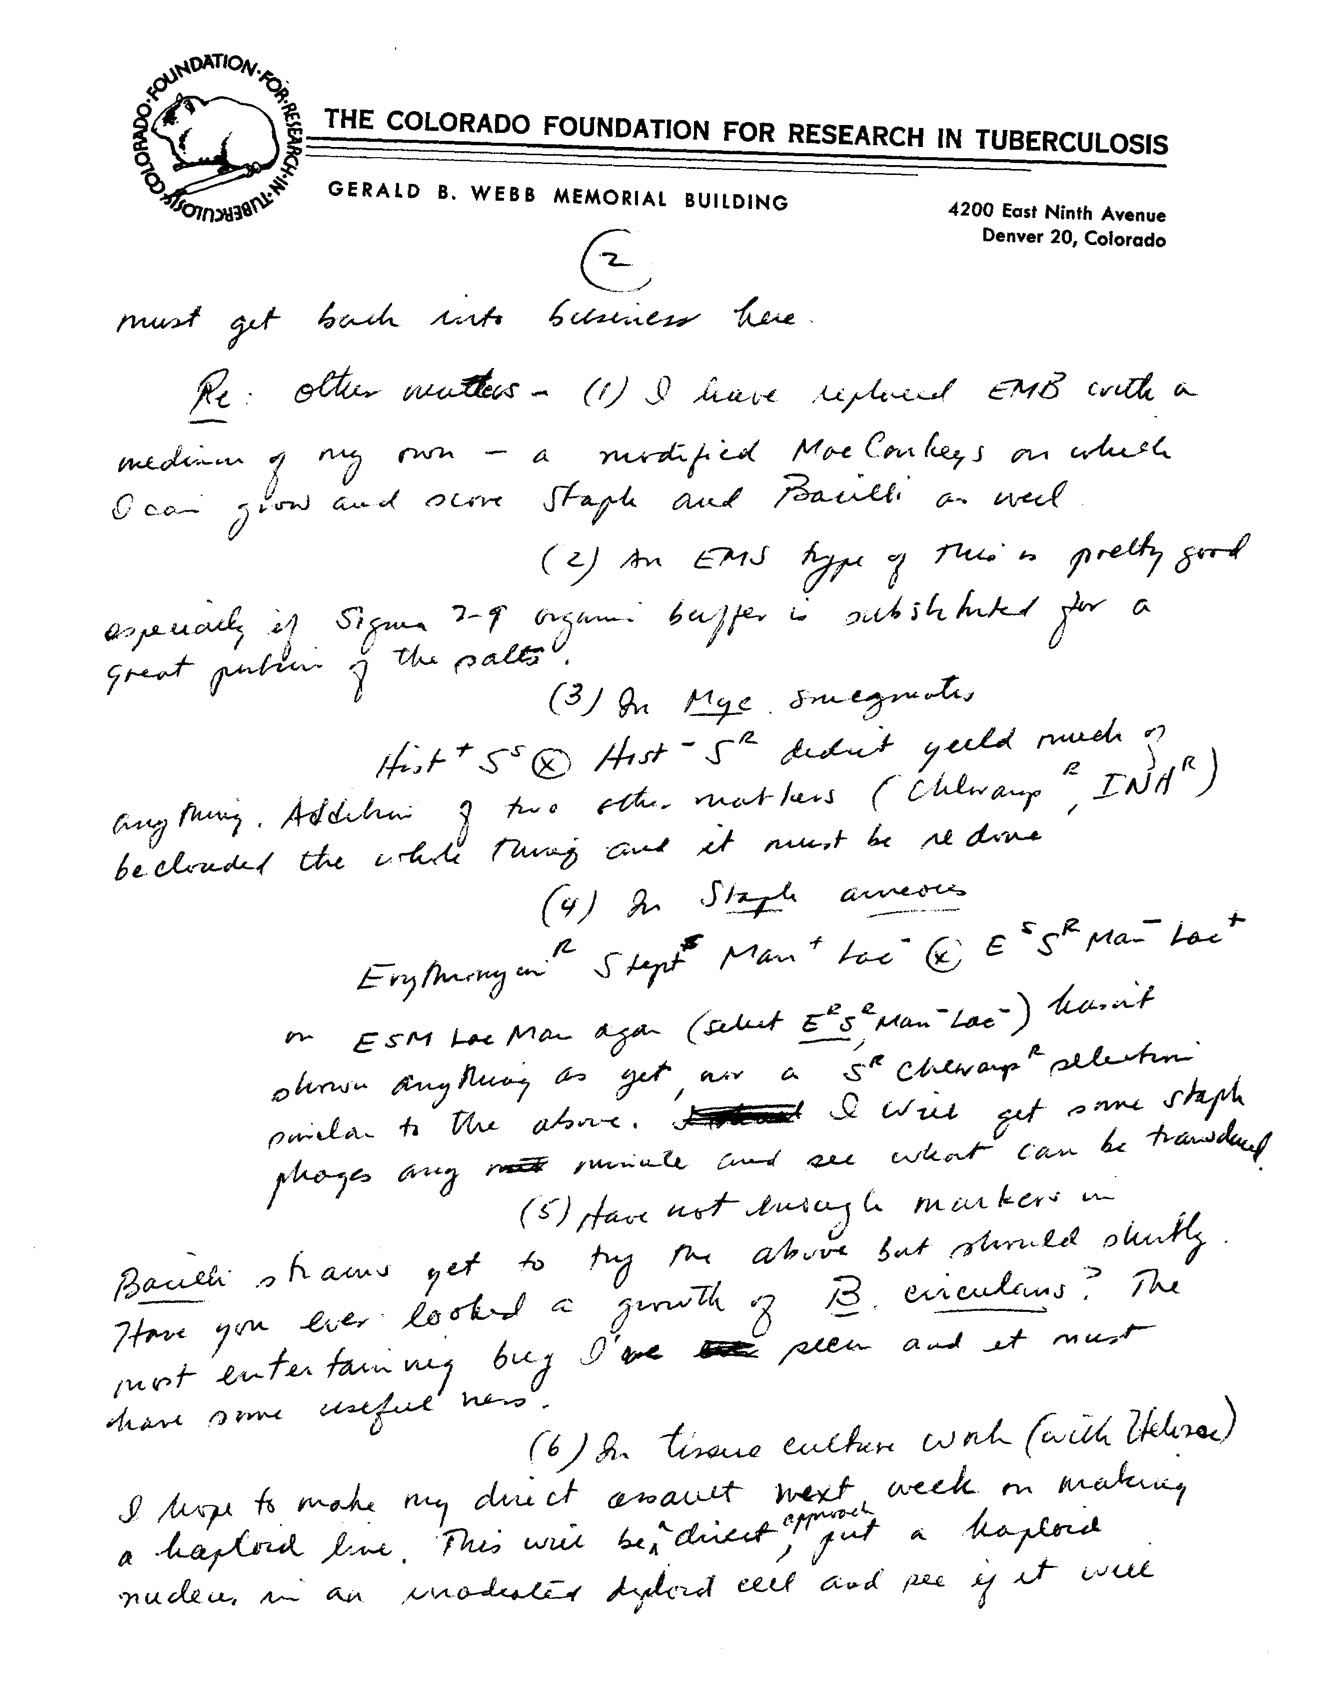 COLORADO·FOUNDATION·FOR·RESEARCH·IN·TUBERCULOSIS
THE COLORADO FOUNDATION FOR RESEARCH IN TUBERCULOSIS
GERALD B. WEBB MEMORIAL BUILDING
4200 East Ninth Avenue
Denver 20, Colorado
2
must get back into business here.
Re: other matters – (1) I have replaced EMB with a
medium of my own – a modified MacConkeys on which
I can grow and score Staph and Bacilli as well
(2) An EMS type of this is pretty good
especially if Sigma 7-9 organic buffer is substituted for a
great portion of the salts.
(3) In Myc. smegmatis
Hist+ S^S ⊗ Hist– S^R didn't yield much of
anything. Addition of two other markers (Chloramp^R, INH^R)
beclouded the whole thing and it must be redone
(4) In Staph aureous
Erythromycin^R Strept^S Man+ Lac– ⊗ E^S S^R Man– Lac+
on ESM Lac Man agar (select E^R S^R Man– Lac–) hasn't
shown anything as yet, nor a S^R Chloramp^R selection
similar to the above. I will get some staph
phages any minute and see what can be transduced.
(5) Have not enough markers in
Bacilli strains yet to try the above but should shortly.
Have you ever looked a growth of B. circulans? The
most entertaining bug I've seen and it must
have some usefulness.
(6) In tissue culture work (with Heloise)
I hope to make my direct assault next week on making
a haploid line. This will be a direct approach, put a haploid
nucleus in an enucleated diploid cell and see if it will